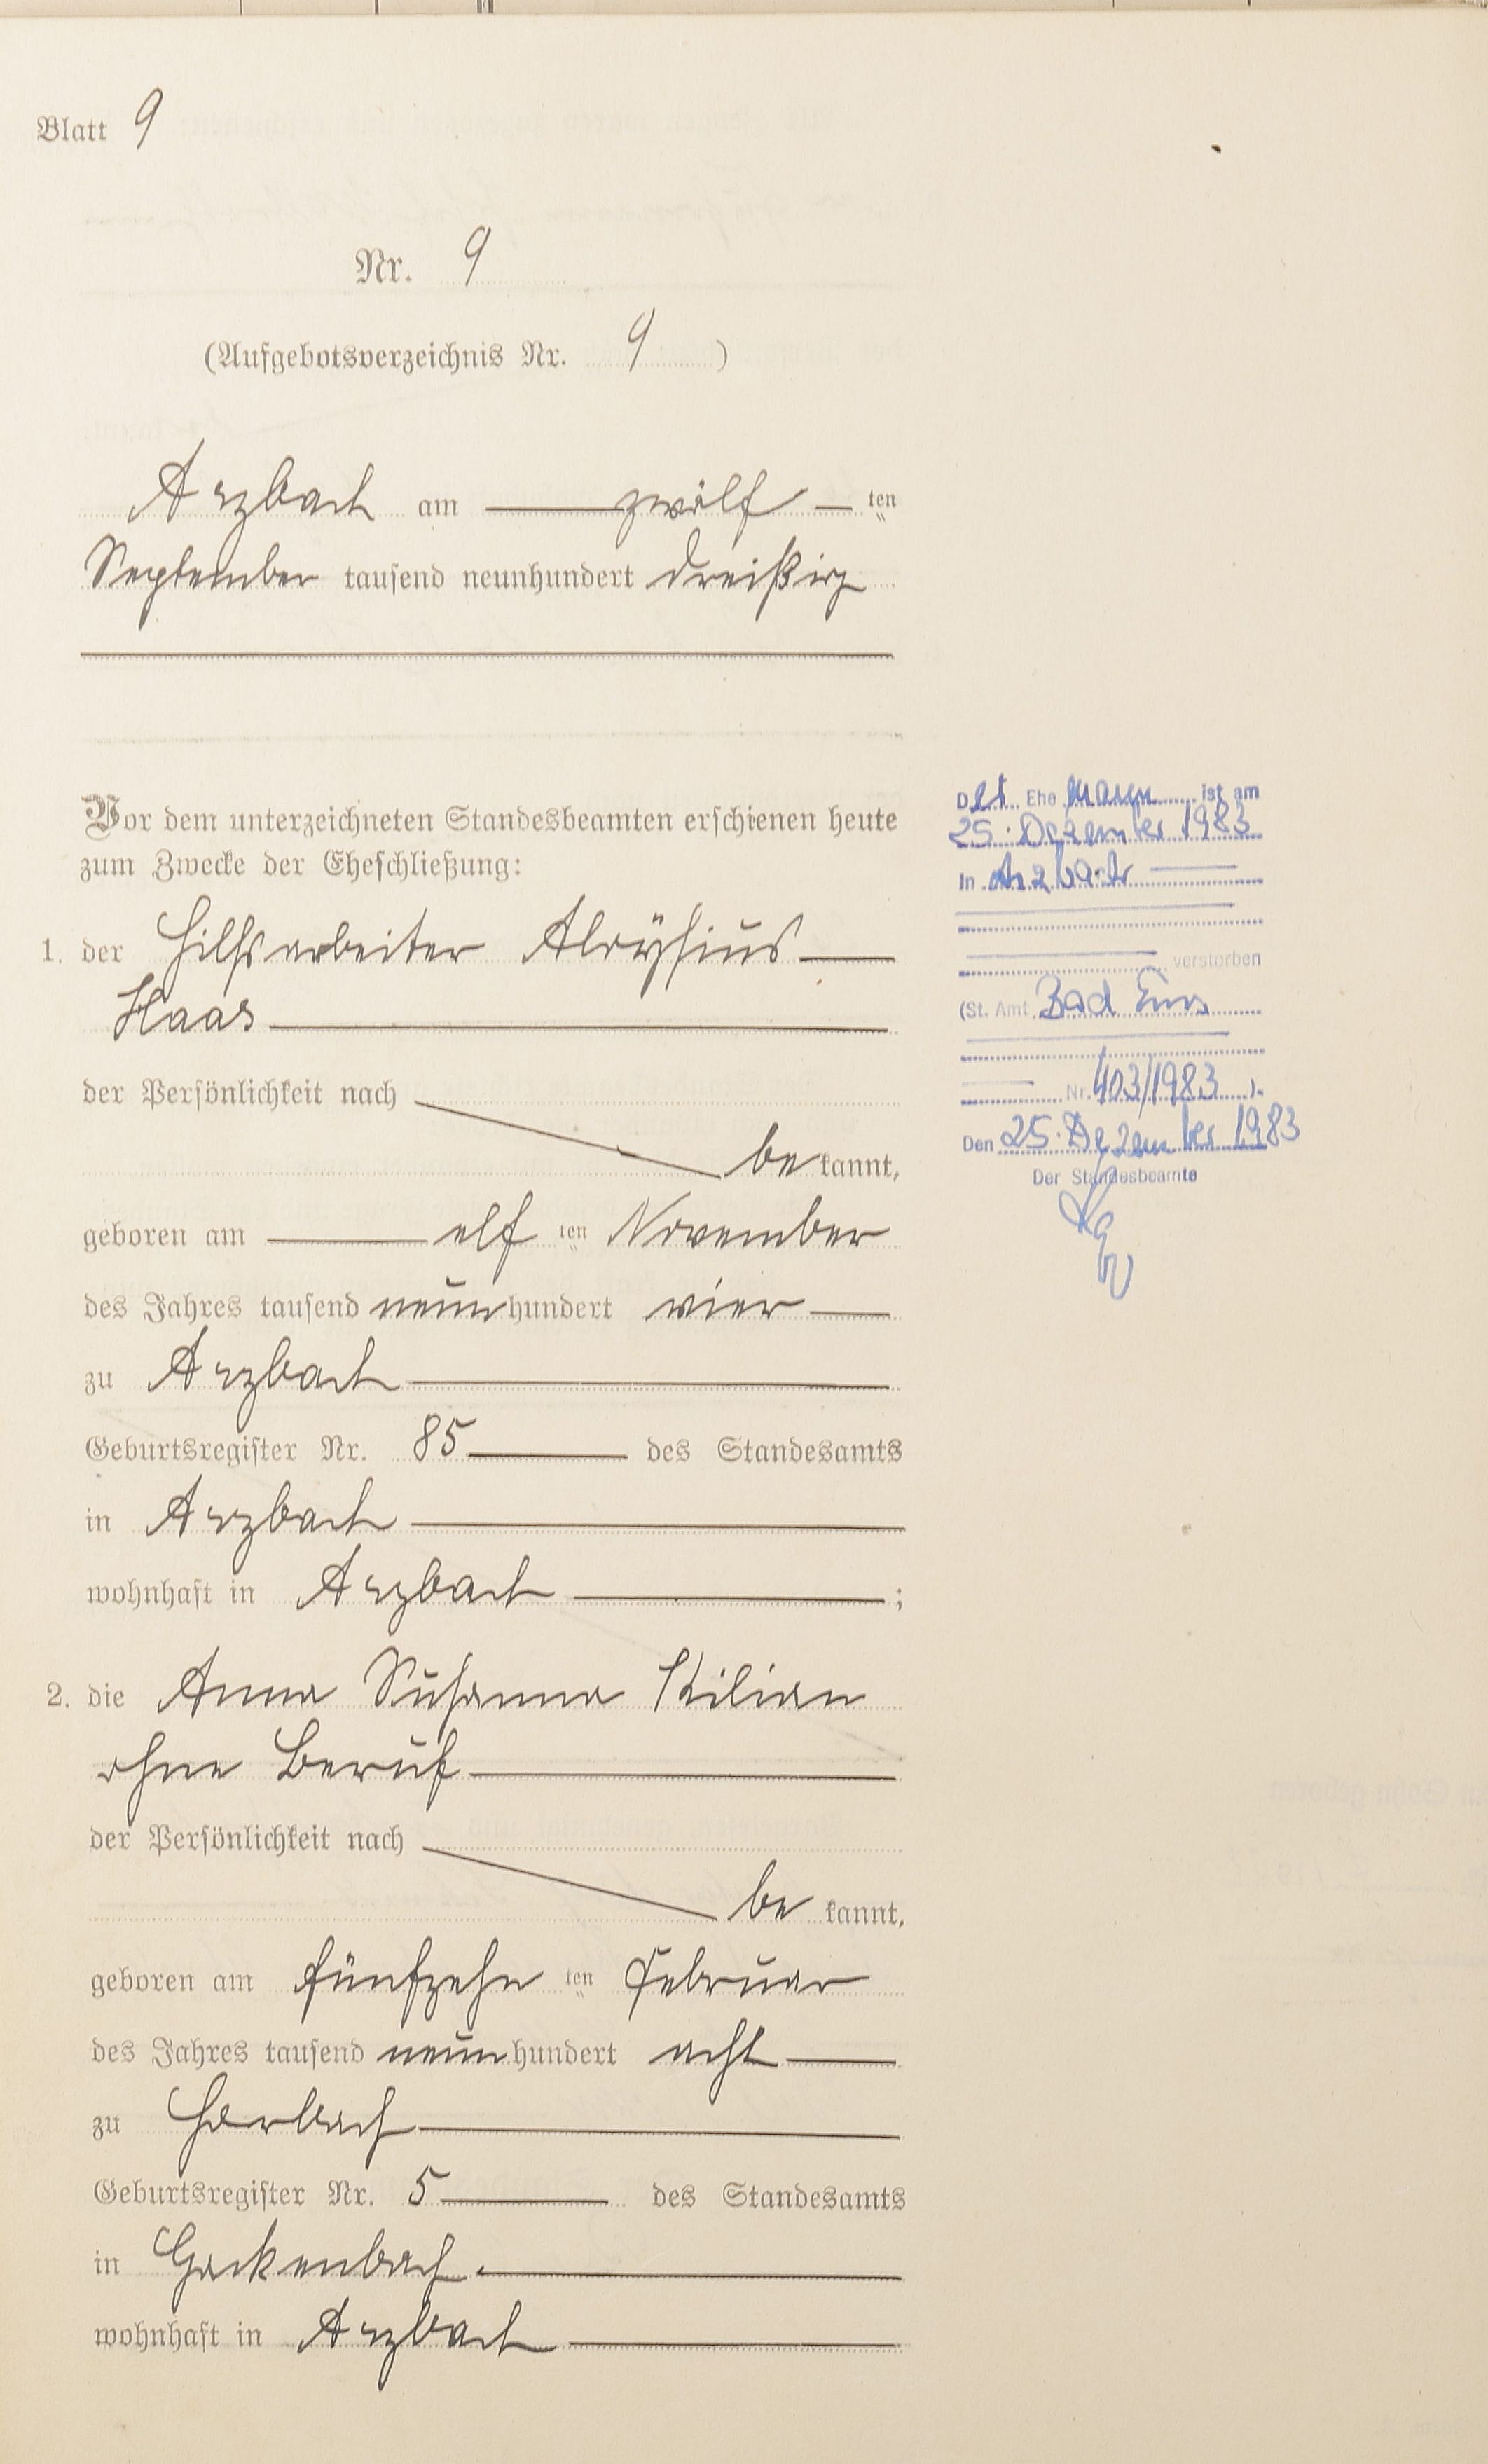 Blatt 9
Nr. 9
(Aufgebotsverzeichnis Nr. 9 )
Arzbach am zwölf ten
September tausend neunhundert dreißig
Vor dem unterzeichneten Standesbeamten erschienen heute
zum Zwecke der Eheschließung:
1. der Hilfsarbeiter Aloÿsius
Haas
der Persönlichkeit nach
be kannt,
geboren am elf ten November
des Jahres tausend neun hundert vier
zu Arzbach
Geburtsregister Nr. 85 des Standesamts
in Arzbach
wohnhaft in Arzbach ;
2. die Anna Susanna Kilian
ohne Beruf
der Persönlichkeit nach
be kannt,
geboren am fünfzehn ten Februar
des Jahres tausend neun hundert acht
zu Horbach
Geburtsregister Nr. 5 des Standesamts
in Gackenbach
wohnhaft in Arzbach
Der Ehe mann ist am
25. Dezember 1983
In Arzbach
verstorben
(St. Amt Bad Ems
Nr. 403/1983 ).
Den 25. Dezember 1983
Der Standesbeamte